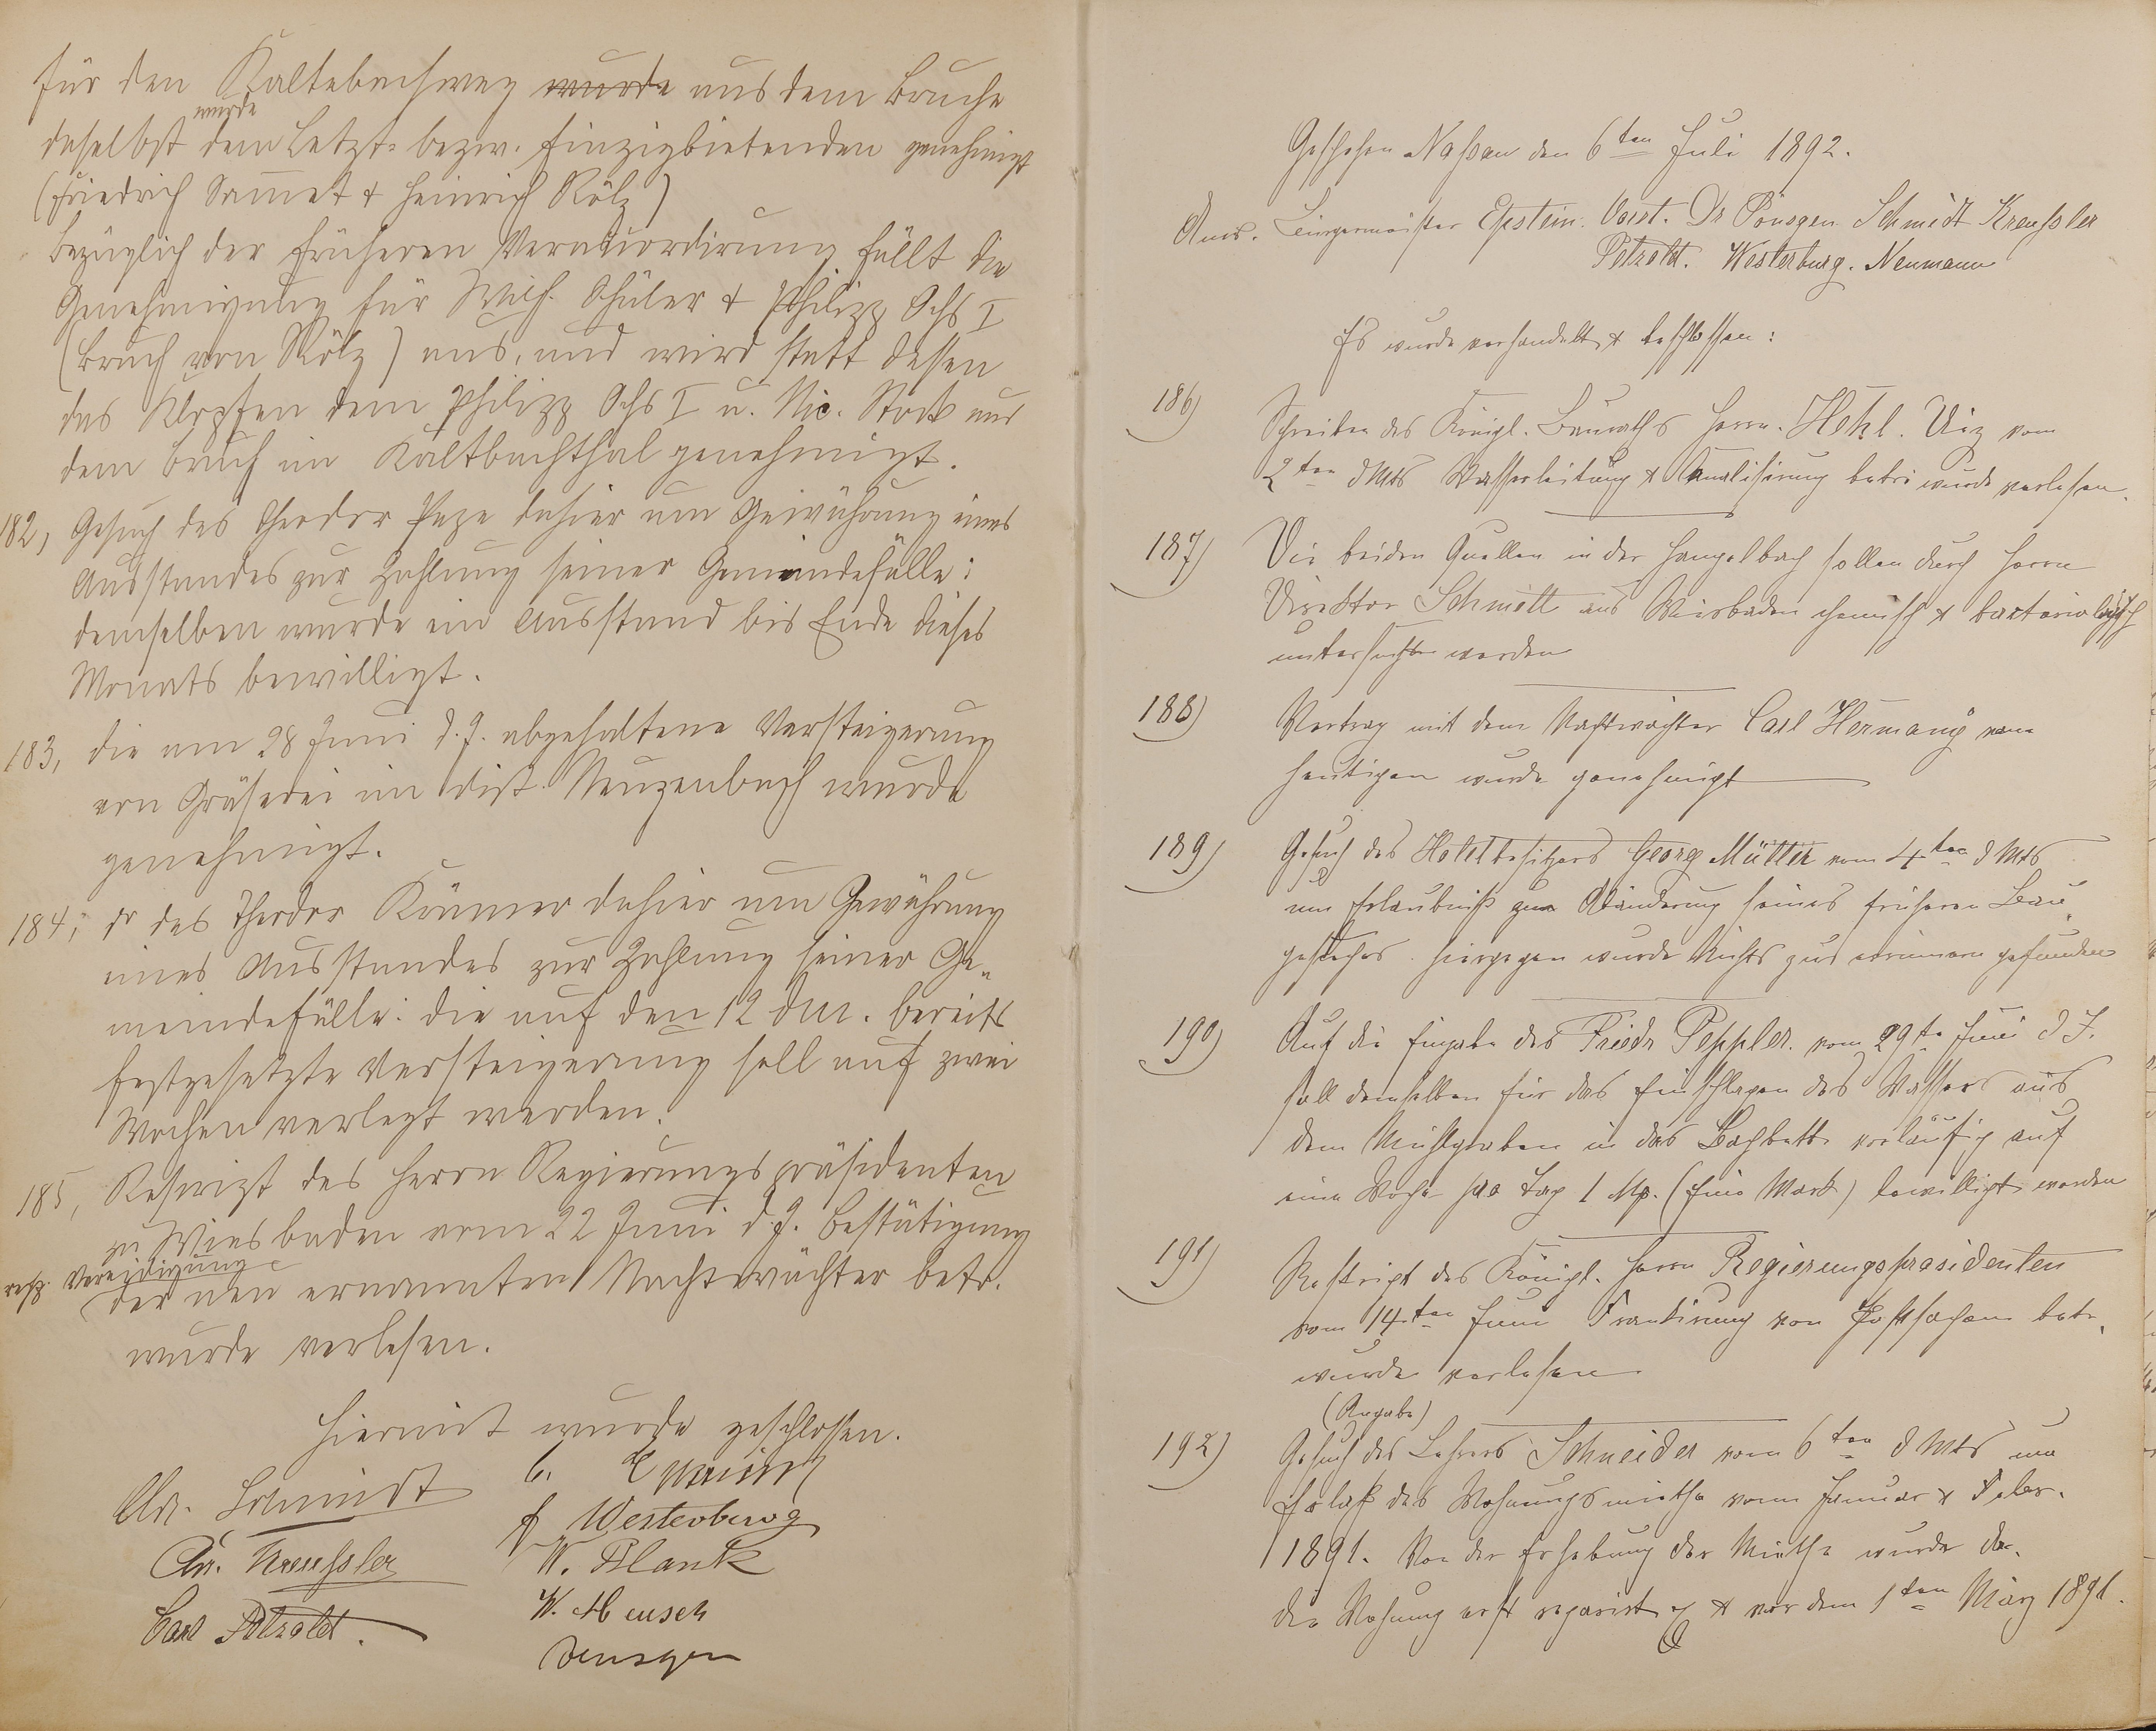 für den Kaltebachweg wurde aus dem Bruche
wurde
daselbst dem Letzt- bezw. Einzigbietenden genehmigt
(Friedrich Sam̅et & Heinrich Kölz)
Bezüglich der früheren Veraccordirung fällt die
Genehmigung für Wilh. Schüler & Philipp Ochs I
(Bruch von Kölz) aus, und wird statt dessen
das Klopfen dem Philipp Ochs I u. Nic. Stock aus
dem Bruch im Kaltbachthal genehmigt.
182, Gesuch des Theodor dahier um Gewährung eines
Ausstandes zur Zahlung seiner Gemeindefälle:
demselben wurde ein Ausstand bis Ende dieses
Monats bewilligt.
183, die am 28 Juni d. J. abgehaltene Versteigerung
von Gräserei im Dist. Neuzenbach wurde
genehmigt.
184, do des Theodor Krämer dahier um Gewährung
eines Ausstandes zur Zahlung seiner Ge-
meindefälle: die auf den 12 dM. bereits
festgesetzte Versteigerung soll auf zwei
Wochen verlegt werden.
185, Reskript des Herrn Regierungspräsidenten
zu Wiesbaden vom 22 Juni d. J. Bestätigung
resp. Vereidigung
der neu ernannten Nachtwächter betr.
wurde verlesen.
Hiermit wurde geschlossen.
Chr. Schmidt
Chr. Kreussler
Carl Petzoldt.
Westerburg
W. Plank
W. Heusch
Poensgen
Geschehen Nassau den 6ten Juli 1892.
Anw. Bürgermeister Epstein. Vorst. Dr Pönsgen Schmidt Kreussler
Petzoldt. Westerburg. Neumann
Es wurde verhandelt & beschlossen:
186) Schreiben des Königl. Bauraths Herrn Hehl. Diez vom
2ten d Mts Wasserleitung & Canalisirung betr: wurde verlesen.
187) Die beiden Quellen in der Hangelbach sollen durch Herrn
Direktor Schmitt aus Wiesbaden chemisch & bacteriologisch
untersucht werden
188) Vertrag mit dem Nachtwächter Carl Hermany vom
heutigen wurde genehmigt
189) Gesuch des Hotelbesitzers Georg Müller vom 4ten d Mts
um Erlaubniß zur Abänderung seines früheren Bau-
gesuches. Hiergegen wurde Nichts zu erinnern gefunden
190) Auf die Eingabe des Friedr Peppler. vom 29te Juni d J.
soll demselben für das Einschlagen des Wassers aus
dem Mühlgraben in das Bachbett vorläufig auf
eine Woche pro Tag 1 Mk. (Eine Mark) bewilligt werden
191) Reskript des Königl. Herrn Regierungspräsidenten
vom 14ten Juni Frankirung von Postsachen betr.
wurde verlesen
(Angabe)
192) Gesuch des Lehrers Schneider vom 6ten d Mts um
Erlaß der Wohnungsmiethe vom Januar & Febr.
1891. Von der Erhebung der Miethe wurde da.
die Wohnung erst reparirt & vor dem 1ten März 1891.